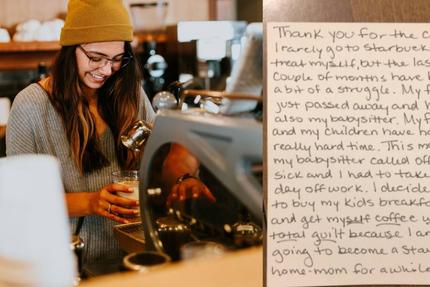 Thank you for the c
I rarely go to Starbuck
treat myself, but the las
couple of months have b
a bit of a struggle. My f
just passed away and h
also my babysitter. My f
and my children have ha
really hard time. This m
my babysitter called off
sick and I had to take
day off work. I decide
to buy my kids breakf
and get myself coffee y
total guilt because I ar
going to become a star
home-mom for a while